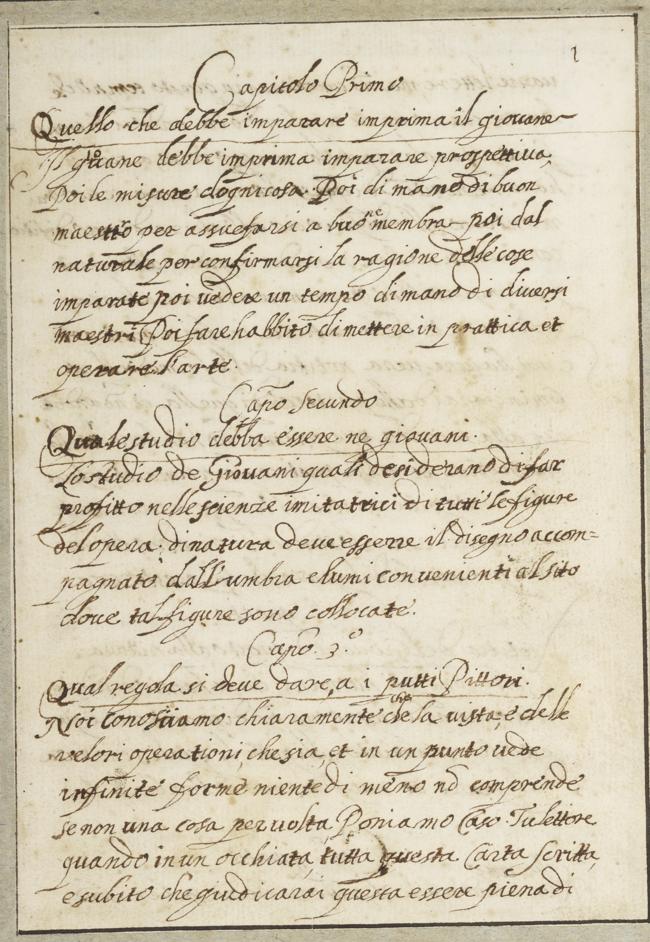 1
Capitolo Primo
Quello che debbe imparare imprima il giovane
Il giovane debbe imprima imparare prospettiva,
Poi le misure d'ogni cosa. Poi di mano di buon
maestro per assuefarsi a buone membra poi dal
naturale per confirmarsi la ragione delle cose
imparate poi vedere un tempo di mano di diversi
maestri, Poi fare habbito di mettere in prattica et
operare l'arte.
Capo secundo
Quale studio debba essere ne giovani.
Lo studio de Giovani quali desiderano di far
profitto nelle scienze imitatrici di tutti le figure
del opera di natura deve esserre il disegno accom=
pagnato dall'umbra e lumi convenienti al sito
dove tal figure sono collocate.
Capo. 3.o
Qual regola si deve dare, a i putti Pittori.
Noi Conosciamo chiaramente che la vista, e delle
velori operationi che sia, et in un punto vede
infinite forme niente di meno nō comprende
se non una cosa per volta, Poniamo Caso Tu lettore
quando in un occhiata, tutta questa Carta Scritta,
e subito che giudicarai questa essere piena di